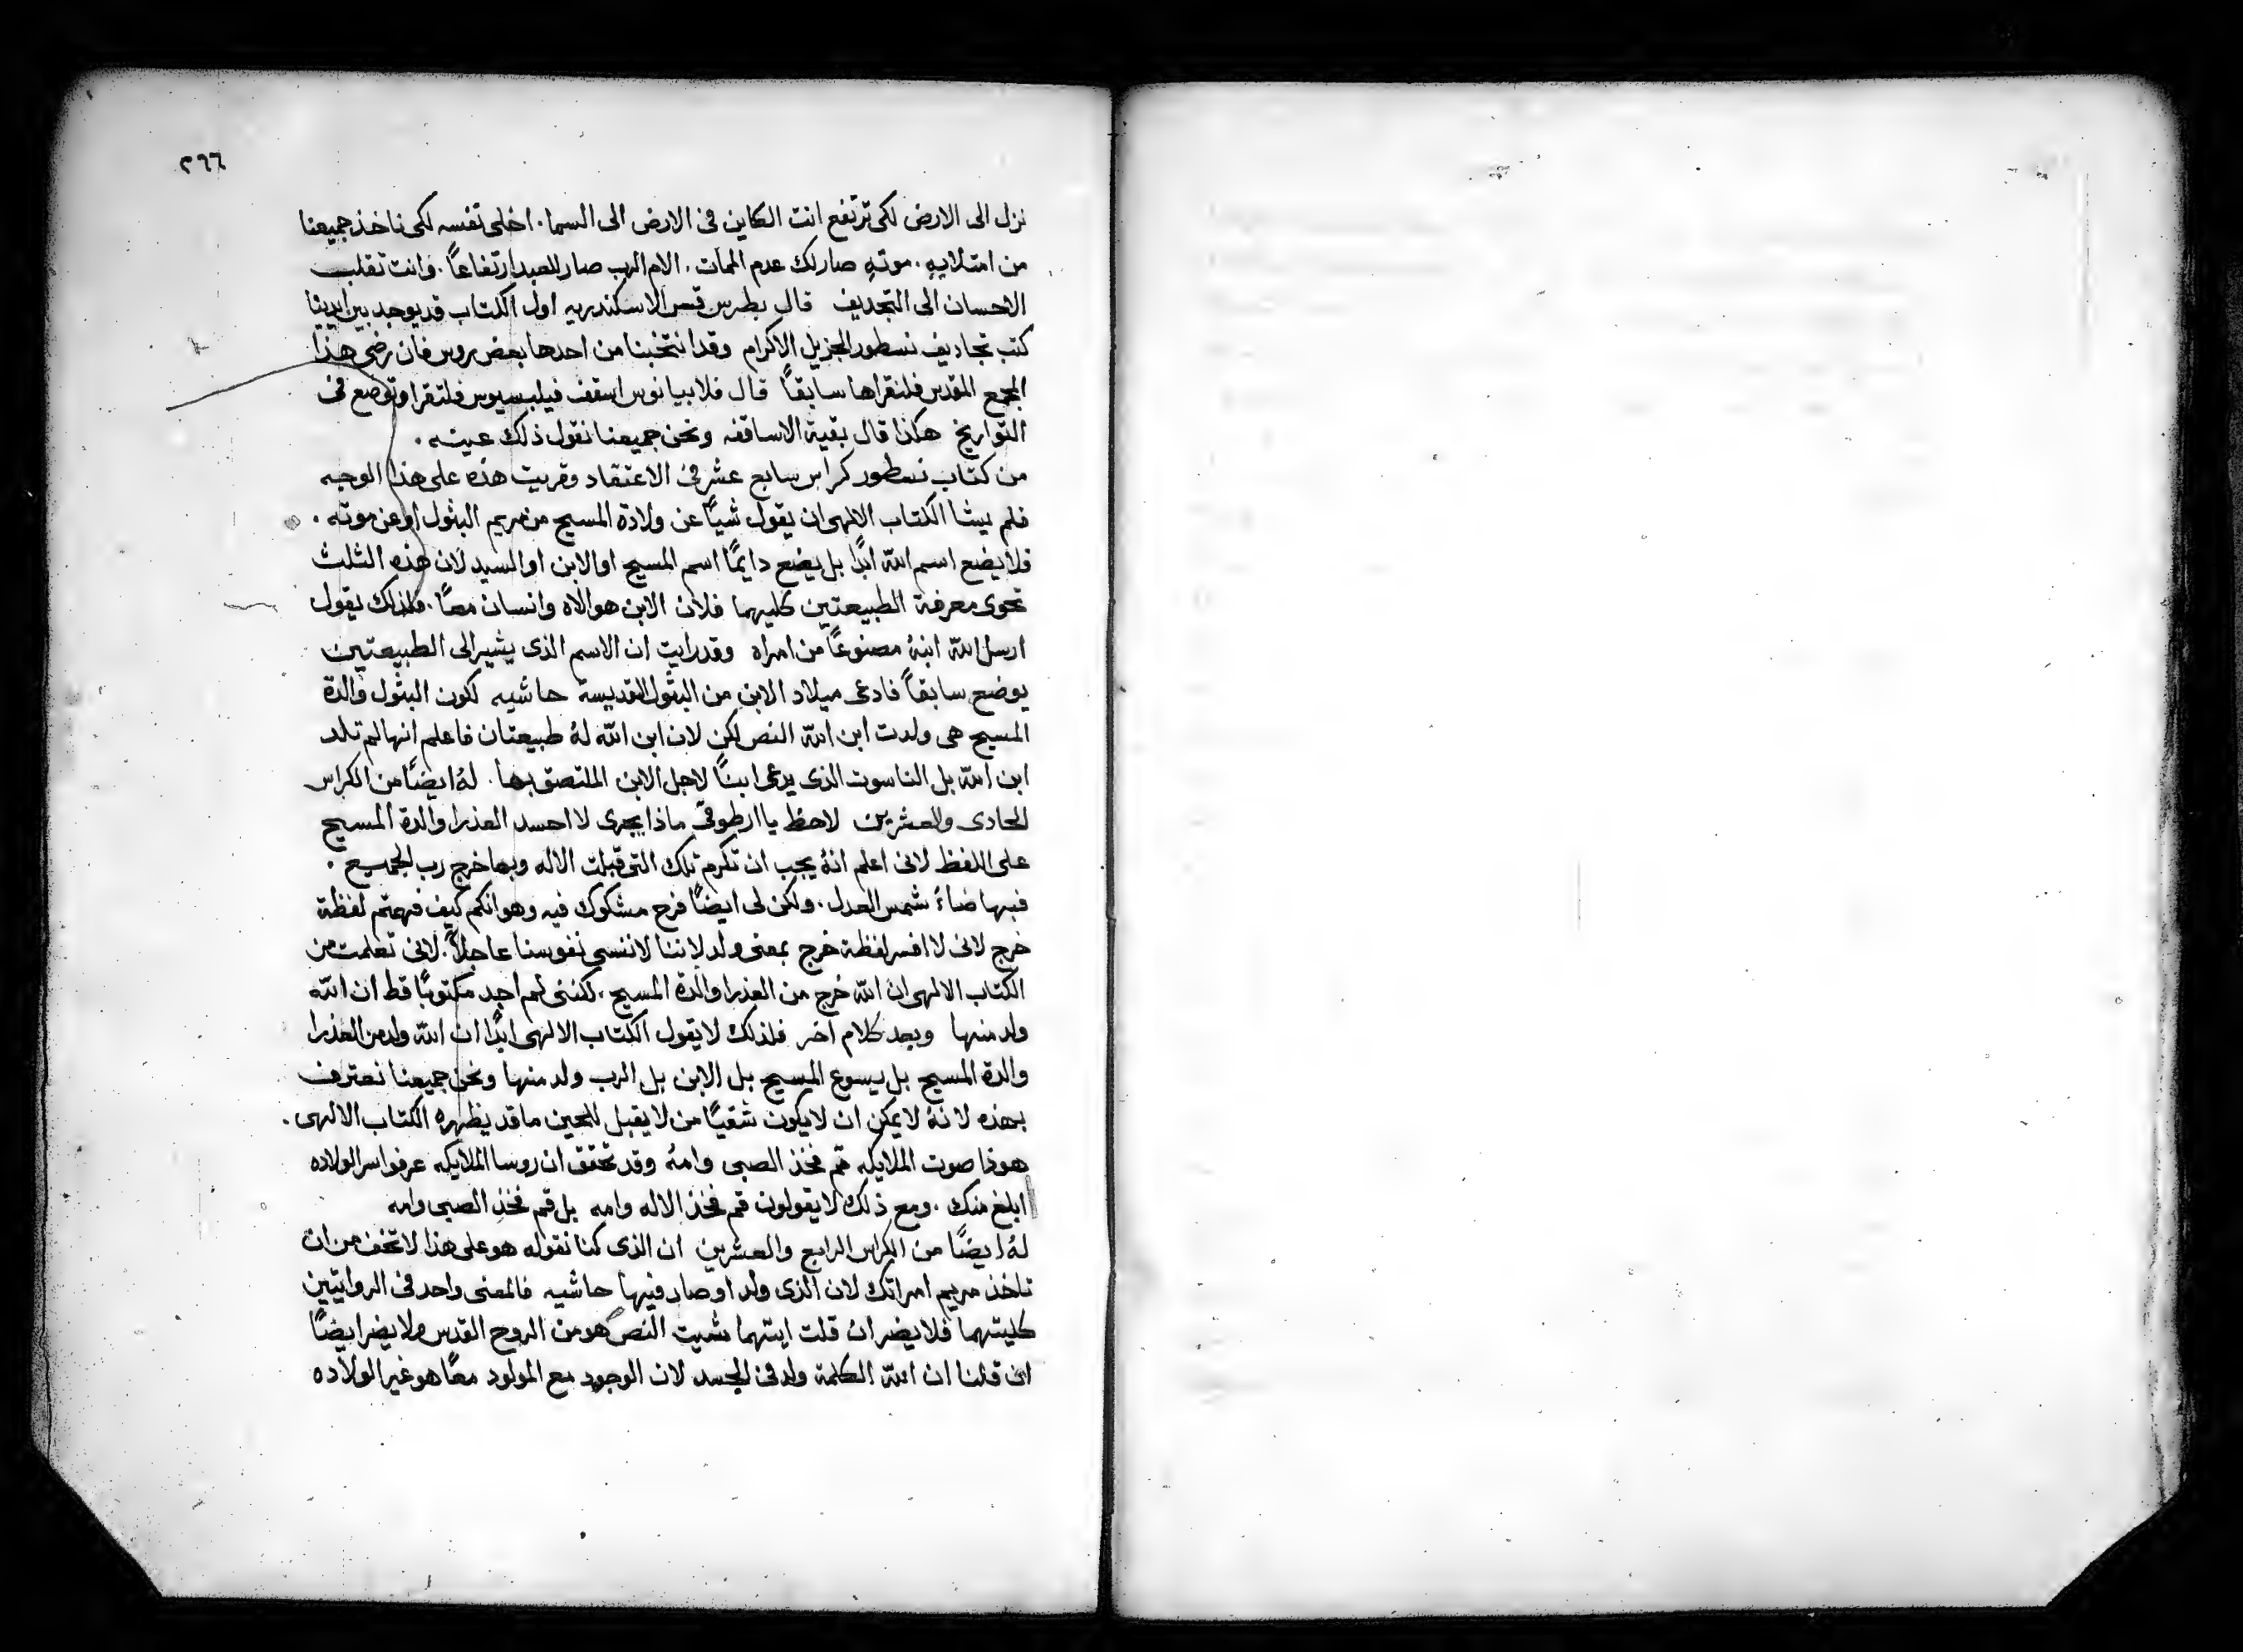 ٢٦٦
نزل الى الارض لكى ترتفع انت الكاين فى الارض الى السما. اخلى نفسه لكى ناخذ جميعنا
من امتلايهِ. موتهِ صار لك عدم الممات. الام الرب صار للعبد ارتفاعاً. وانت تقلب
الاحسان الى التجديف قال بطرس قس الاسكندريه اول الكتاب قد يوجد بين ايدينا
كتب تجاديف نسطور الجزيل الاكرام وقد انتخبنا من احدها بعض روس فان رضى هذا
المجمع المقدس فلنقراها سابقاً قال فلابيانوس اسقف فيلبسيوس فلتقرا وتوضع فى
التواريخ هكذا قال بقية الاساقفه ونحن جميعنا نقول ذلك عينه.
من كتاب نسطور كراس سابع عشر فى الاعتقاد وقريت هذه على هذا الوجه
فلم يشا الكتاب الالهى ان يقول شياً عن ولادة المسيح من مريم البثول او عن موته.
فلا يضع اسم الله ابداً بل يضع دايمًا اسم المسيح او الابن او السيد لان هذه الثلث
تحوى معرفة الطبيعتين كليهما فلان الابن هو الاه وانسان معًا. فلذلك يقول
ارسل الله ابنهُ مصنوعًا من امراه وقد رايت ان الاسم الذى يشير الى الطبيعتين
يوضع سابقاً فادعى ميلاد الابن من البثول القديسة حاشيه لكون البثول والدة
المسيح هى ولدت ابن الله النص لكن لان ابن الله لهُ طبيعتان فاعلم انها لم تلد
ابن الله بل الناسوت الذى يدعى ابناً لاجل الابن الملتصق بها. لهُ ايضًا من الكراس
الحادى والعشرين لاحظ يا ارطوقى ماذا يجرى لا احسد العذرا والدة المسيح
على اللفظ لانى اعلم انهُ يجب ان تكرم تلك التى قبلت الاله وبها خرج رب الجميع.
فبها ضاءَ شمس العدل. ولكن لى ايضًا فرح مشكوك فيه وهو انكم كيف فهمتم لفظة
خرج لانى لا افسر لفظة خرج بمعنى ولد لاننا لا ننسى نفوسنا عاجلاً. لانى تعلمت من
الكتاب الالهى ان الله خرج من العذرا والدة المسيح. لكننى لم اجد مكتوبًا قط ان الله
ولد منها وبعد كلام اخر فلذلك لا يقول الكتاب الالهى ابدًا ان الله ولد من العذرا
والدة المسيح بل يسوع المسيح بل الابن بل الرب ولد منها ونحن جميعنا نعترف
بهذه لانهُ لا يمكن ان لا يكون شقيًا من لا يقبل للحين ما قد يظهره الكتاب الالهى.
هوذا صوت الملايكه قم فخذ الصبى وامهُ وقد تحقق ان روسا الملايكه عرفوا سر الولاده
ابلغ منك. ومع ذلك لا يقولون قم فخذ الاله وامه بل قم فخذ الصبى وامه
لهُ ايضًا من الكراس الرابع والعشرين ان الذى كنا نقوله هو على هذا لا تخف من ان
تاخذ مريم امراتك لان الذى ولد او صار فيها حاشيه فالمعنى واحد فى الروايتين
كليتهما فلا يضر ان قلت ايتهما شيت النص هو من الروح القدس ولا يضر ايضًا
ان قلنا ان الله الكلمة ولد فى الجسد لان الوجود مع المولود معًا هو غير الولاده